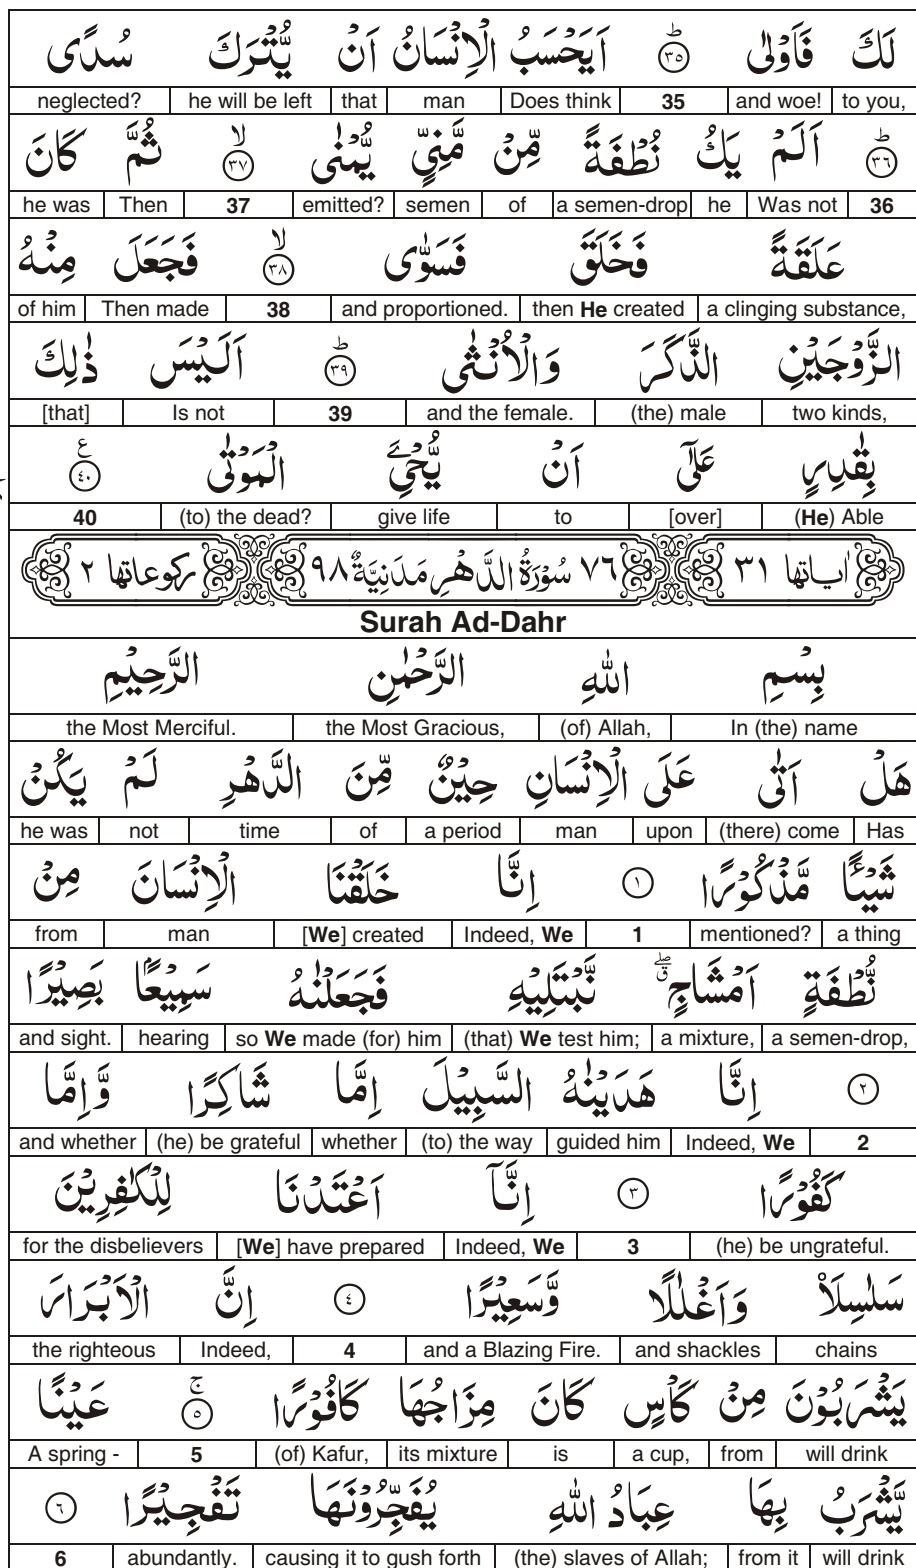 لَكَ فَاَوْلٰى ؕ ﴿۳۵﴾ اَيَحْسَبُ الْاِنْسَانُ اَنْ يُّتْرَكَ سُدًى
to you, and woe! 35 Does think man that he will be left neglected?
ؕ ﴿۳۶﴾ اَلَمْ يَكُ نُطْفَةً مِّنْ مَّنِيٍّ يُّمْنٰى ۙ ﴿۳۷﴾ ثُمَّ كَانَ
36 Was not he a semen-drop of semen emitted? 37 Then he was
عَلَقَةً فَخَلَقَ فَسَوّٰى ۙ ﴿۳۸﴾ فَجَعَلَ مِنْهُ
a clinging substance, then He created and proportioned. 38 Then made of him
الزَّوْجَيْنِ الذَّكَرَ وَالْاُنْثٰى ؕ ﴿۳۹﴾ اَلَيْسَ ذٰلِكَ
two kinds, (the) male and the female. 39 Is not [that]
بِقٰدِرٍ عَلٰٓى اَنْ يُّحْيِۦَ الْمَوْتٰى ﴿۴۰﴾ ع
(He) Able [over] to give life (to) the dead? 40
اٰياتها ٣١ ٧٦ سُوْرَةُ الدَّهْرِ مَدَنِيَّةٌ ٩٨ ركوعاتها ٢
Surah Ad-Dahr
بِسْمِ اللهِ الرَّحْمٰنِ الرَّحِيْمِ
In (the) name (of) Allah, the Most Gracious, the Most Merciful.
هَلْ اَتٰى عَلَى الْاِنْسَانِ حِيْنٌ مِّنَ الدَّهْرِ لَمْ يَكُنْ
Has (there) come upon man a period of time not he was
شَيْـًٔا مَّذْكُوْرًا ﴿۱﴾ اِنَّا خَلَقْنَا الْاِنْسَانَ مِنْ
a thing mentioned? 1 Indeed, We [We] created man from
نُّطْفَةٍ اَمْشَاجٍ ۖق نَّبْتَلِيْهِ فَجَعَلْنٰهُ سَمِيْعًۢا بَصِيْرًا
a semen-drop, a mixture, (that) We test him; so We made (for) him hearing and sight.
﴿۲﴾ اِنَّا هَدَيْنٰهُ السَّبِيْلَ اِمَّا شَاكِرًا وَّاِمَّا
2 Indeed, We guided him (to) the way whether (he) be grateful and whether
كَفُوْرًا ﴿۳﴾ اِنَّآ اَعْتَدْنَا لِلْكٰفِرِيْنَ
(he) be ungrateful. 3 Indeed, We [We] have prepared for the disbelievers
سَلٰسِلَا۟ وَاَغْلٰلًا وَّسَعِيْرًا ﴿۴﴾ اِنَّ الْاَبْرَارَ
chains and shackles and a Blazing Fire. 4 Indeed, the righteous
يَشْرَبُوْنَ مِنْ كَاْسٍ كَانَ مِزَاجُهَا كَافُوْرًا ۚ ﴿۵﴾ عَيْنًا
will drink from a cup, is its mixture (of) Kafur, 5 A spring -
يَّشْرَبُ بِهَا عِبَادُ اللهِ يُفَجِّرُوْنَهَا تَفْجِيْرًا ﴿۶﴾
will drink from it (the) slaves of Allah; causing it to gush forth abundantly. 6